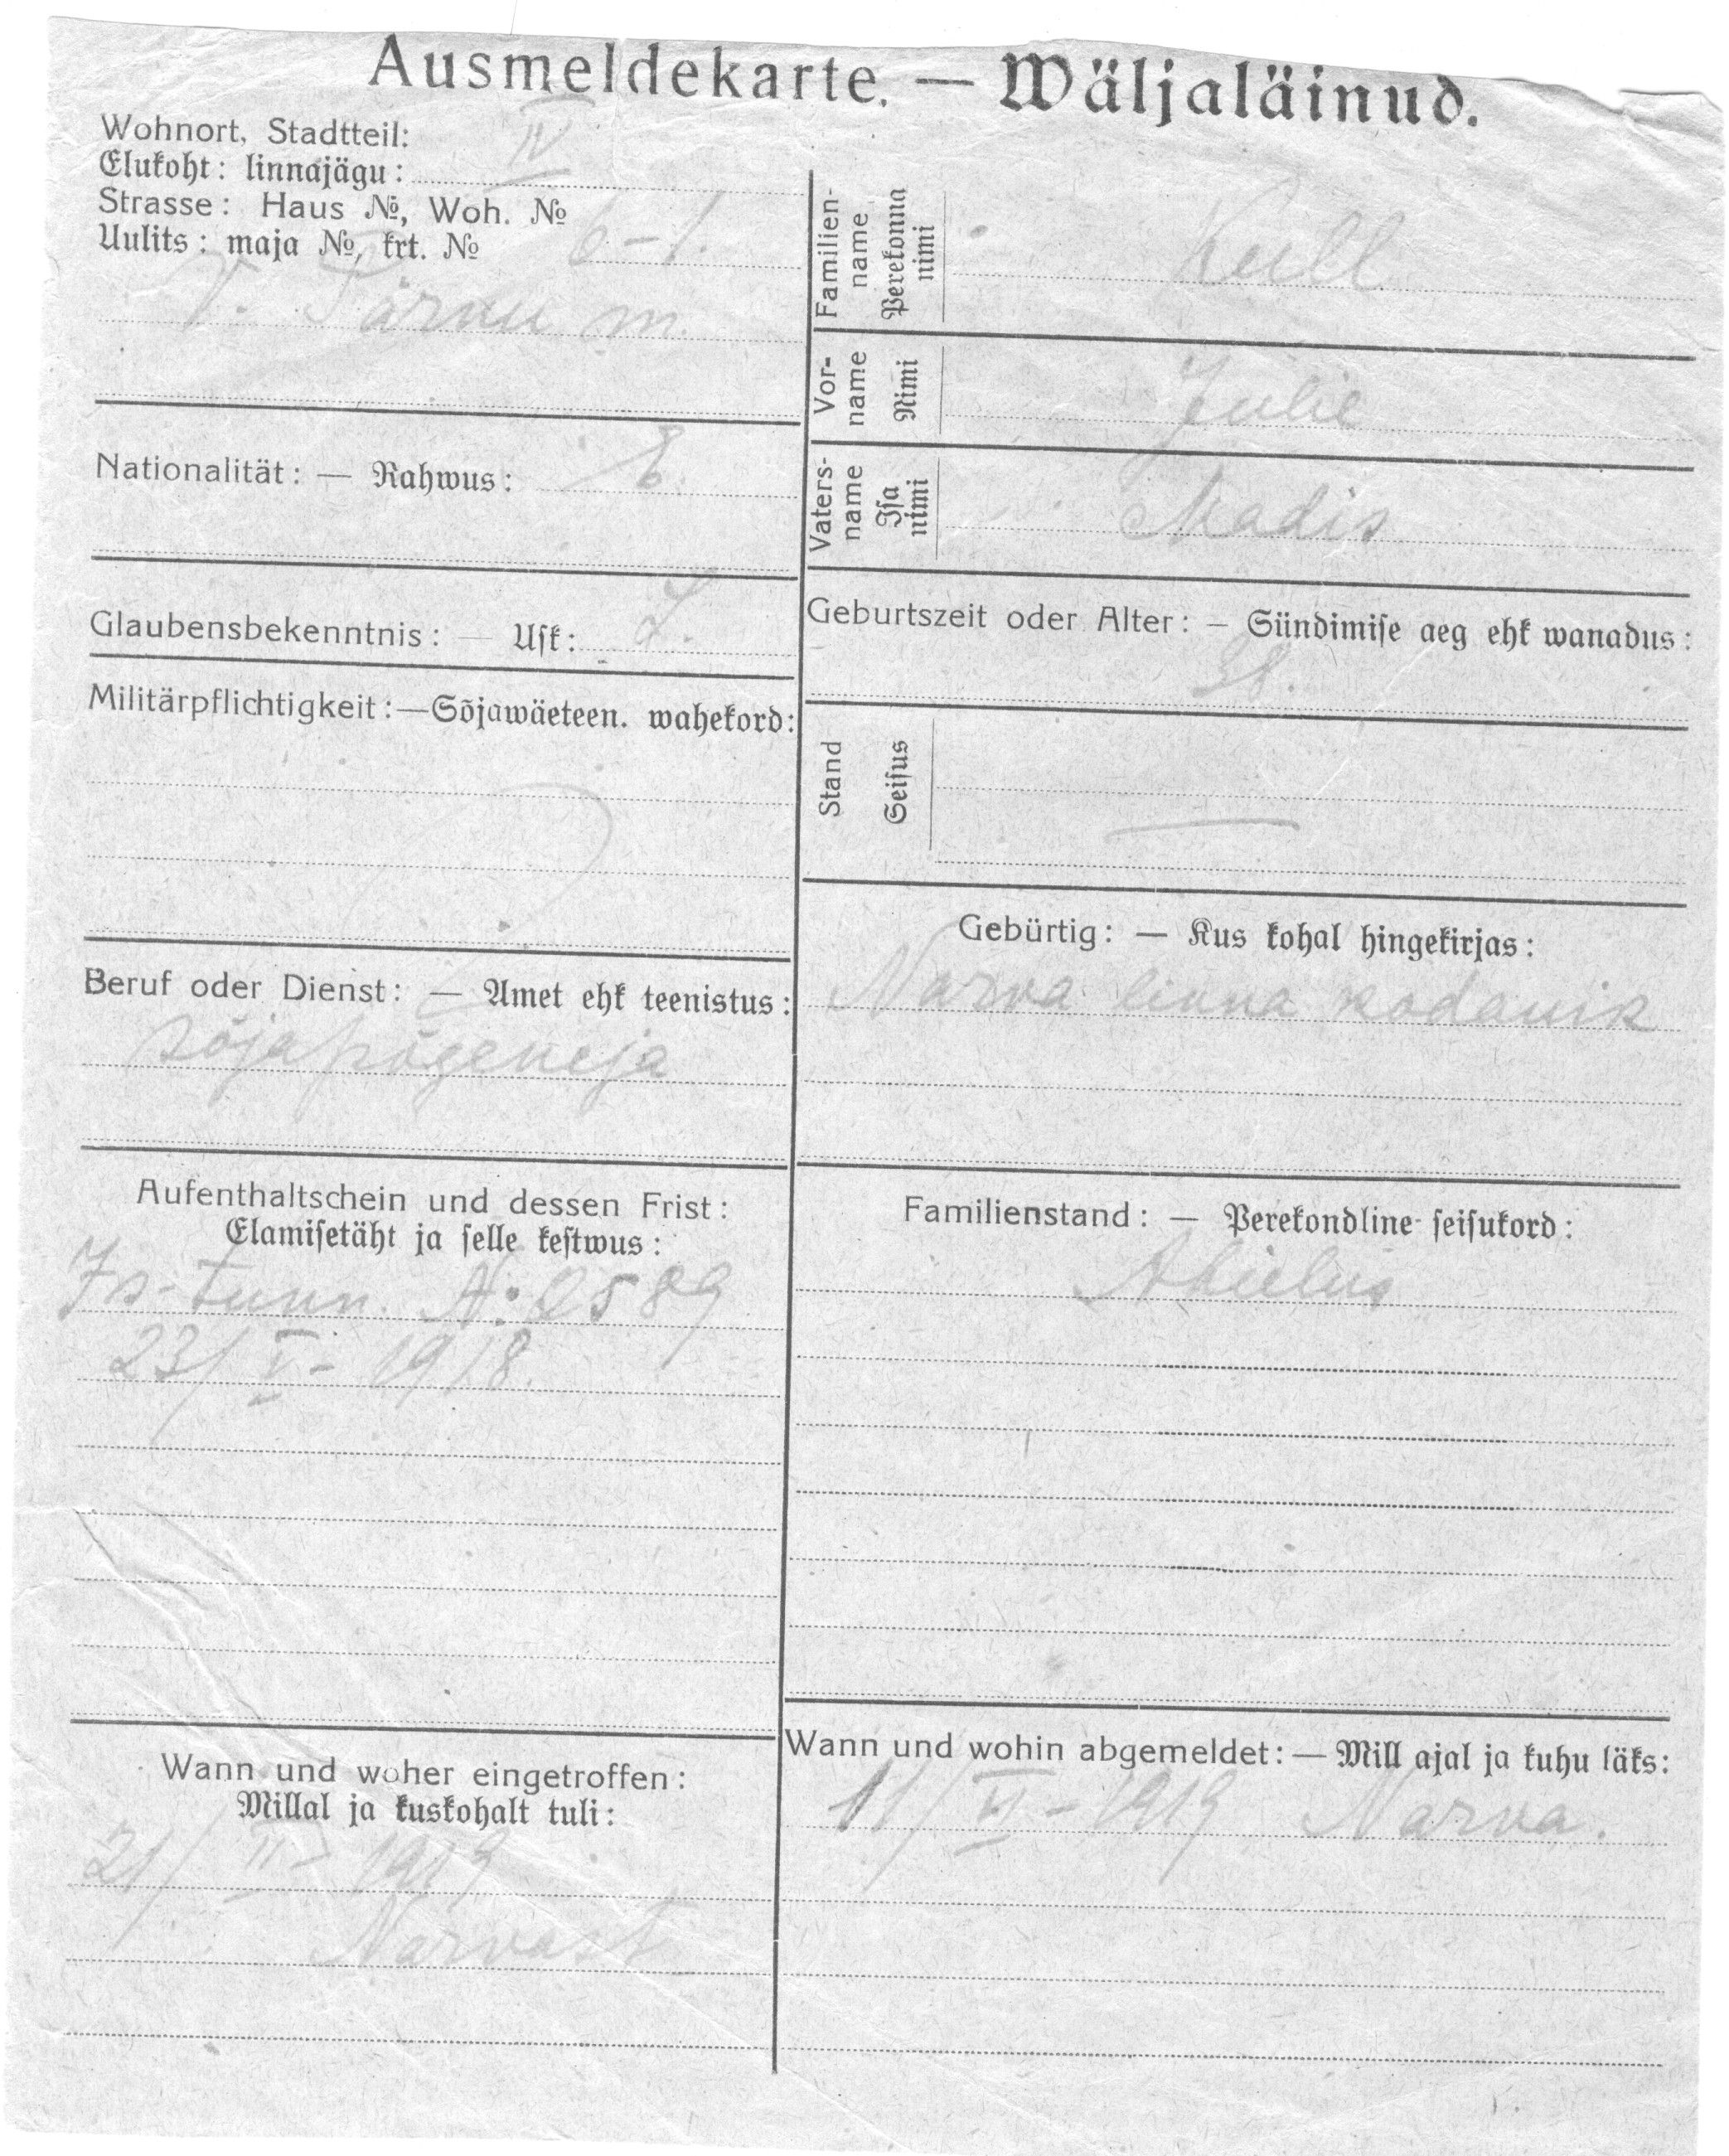 Ausmeldekarte. — Wäljaläinud.
Wohnort, Stadtteil:
Elukoht: linnajägu: IV
Strasse: Haus №, Woh. №
Uulits: maja №, krt. № 6-1.
V. Pärnu m.
Nationalität: — Rahwus: E.
Glaubensbekenntnis: — Usk: L.
Militärpflichtigkeit: — Sõjawäeteen. wahekord:
Beruf oder Dienst: — Amet ehk teenistus:
sõjapõgeneja
Aufenthaltschein und dessen Frist:
Elamisetäht ja selle kestwus:
Is-tunn. N: 2589
23/V-1918.
Wann und woher eingetroffen:
Millal ja kuskohalt tuli:
21/III-1919
Narvast
Familien-
name
Perekonna
nimi
Kull
Vor-
name
Nimi
Julie
Vaters-
name
Isa
nimi
Madis
Geburtszeit oder Alter: — Sündimise aeg ehk wanadus:
38.
Stand
Seisus
—
Gebürtig: — Kus kohal hingekirjas:
Narva linna kodanik
Familienstand: — Perekondline seisukord:
Abielus
Wann und wohin abgemeldet: — Mill ajal ja kuhu läks:
11/VI-1919 Narva.